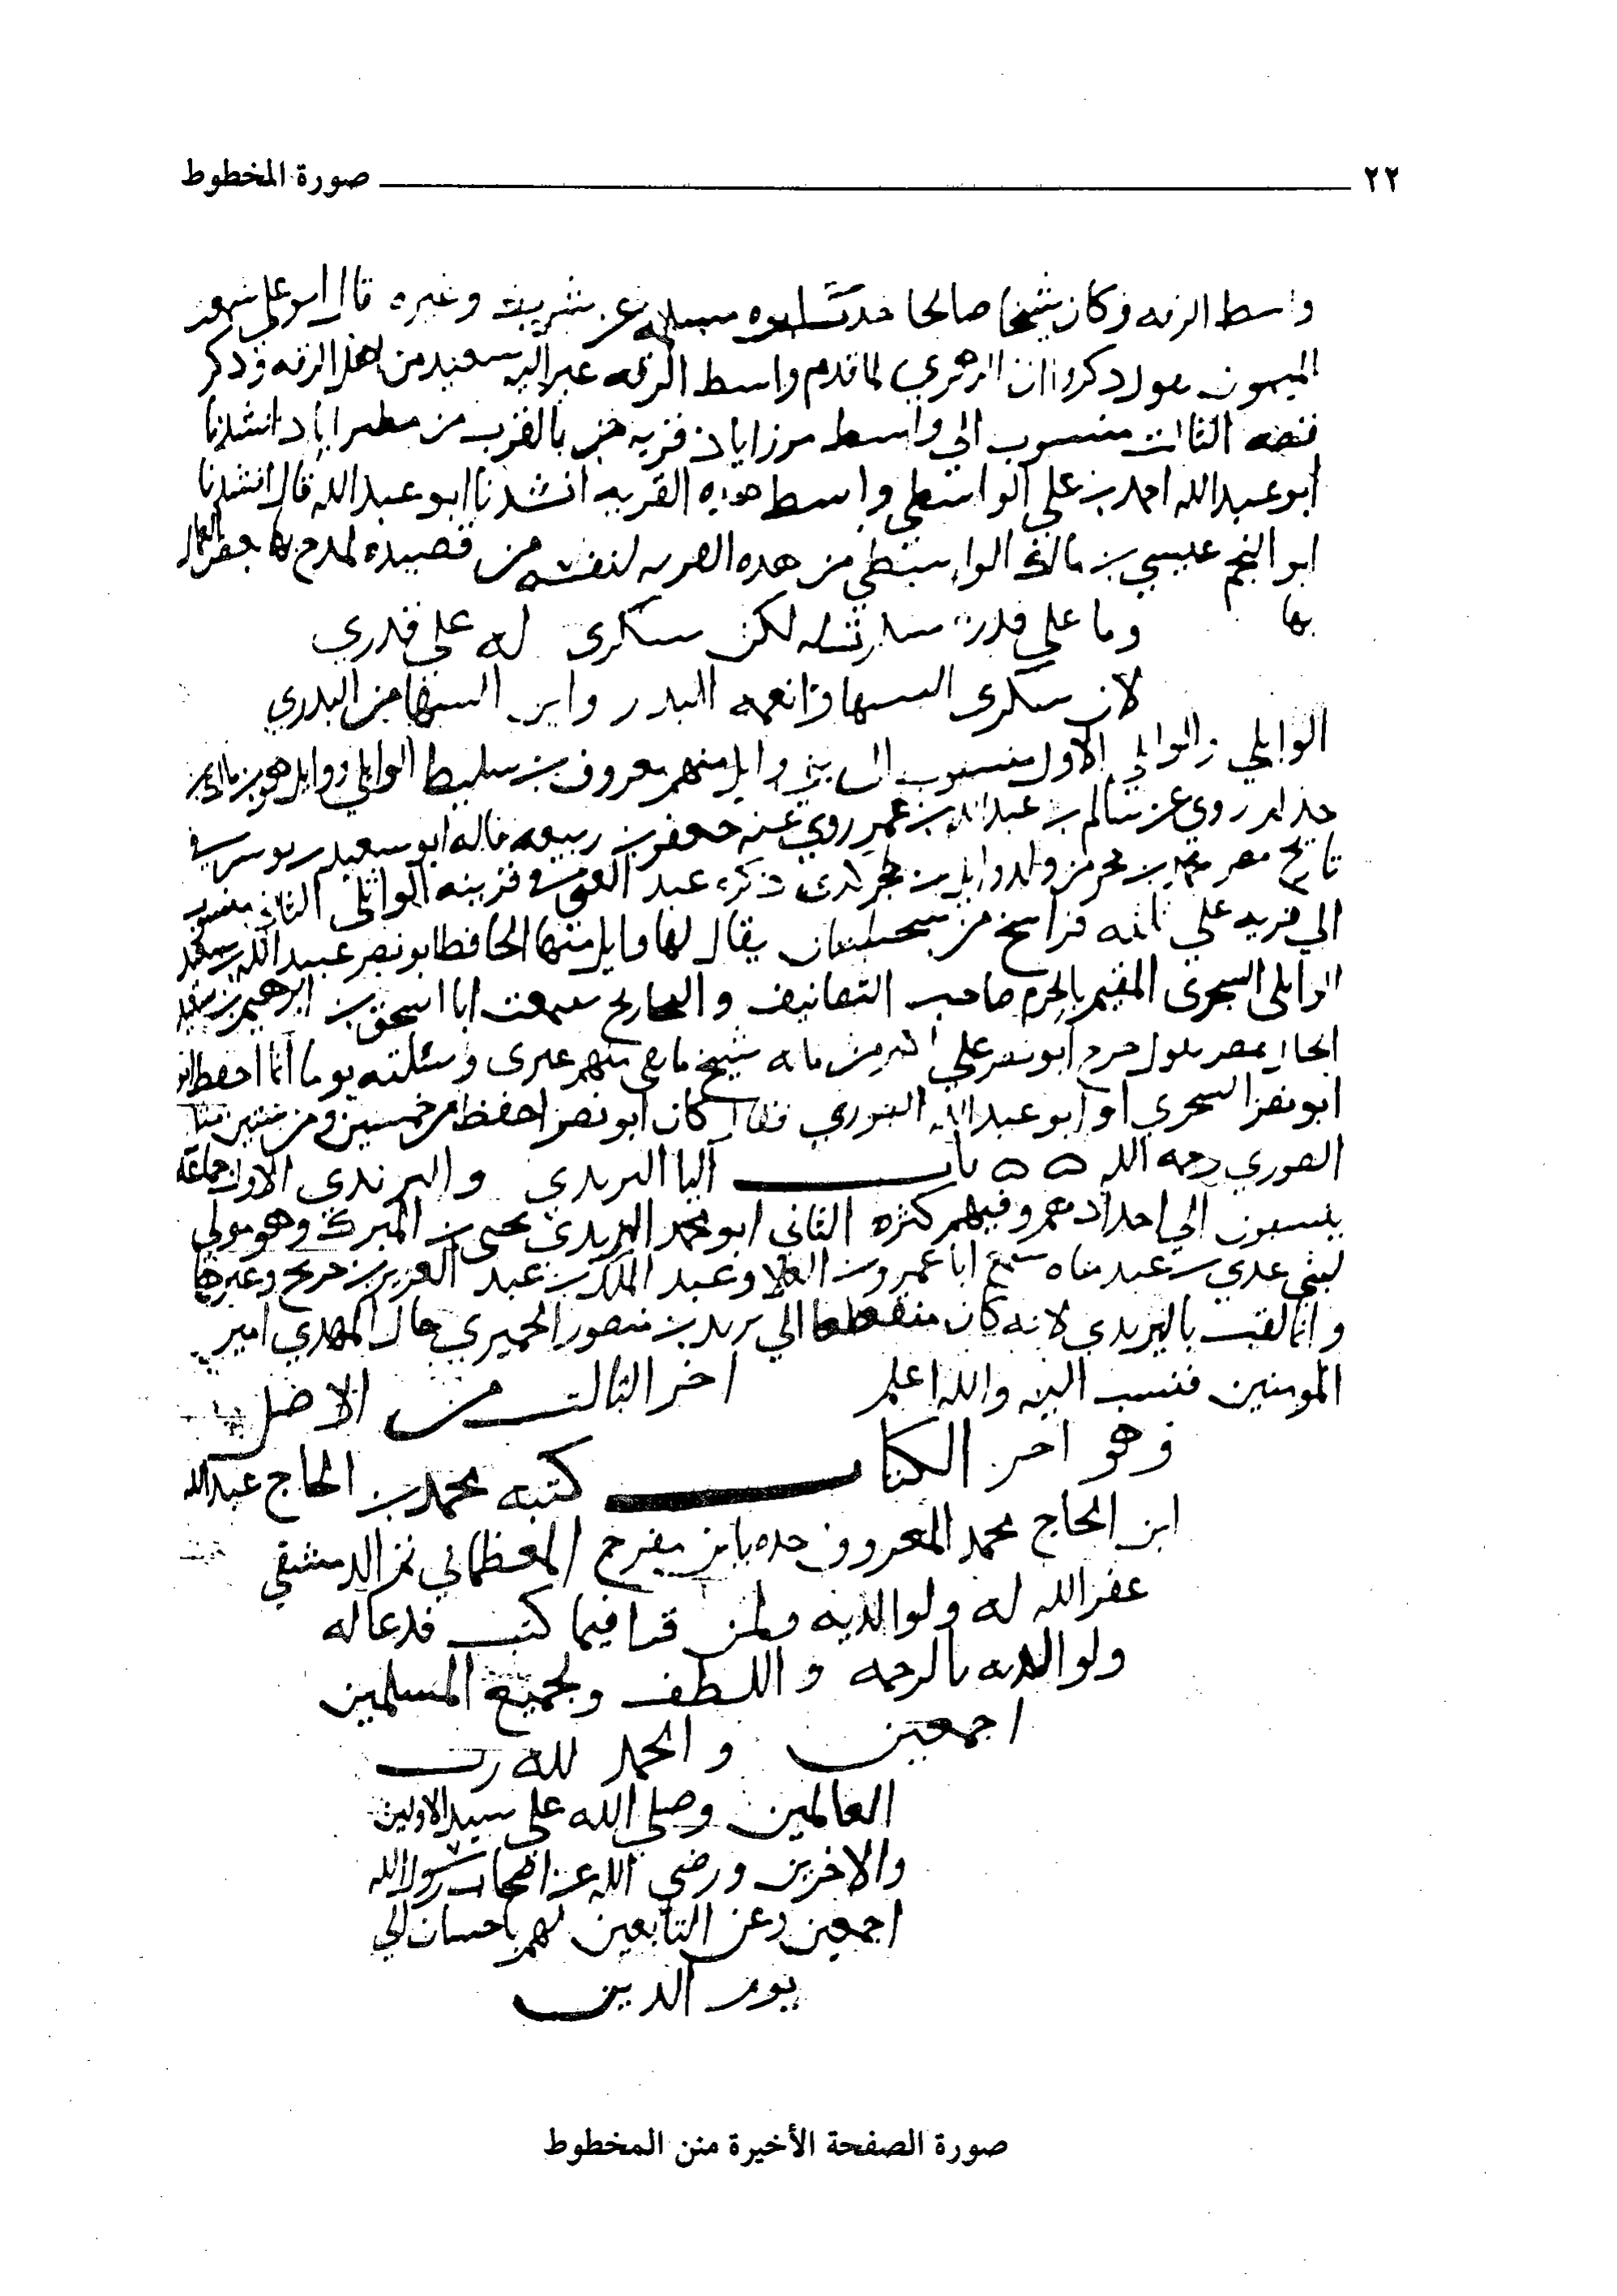 ٢٢ صورة المخطوط
واسط الرقه وكان شيخا صالحا عن شريك وغيره قال ابو علي
الميمون يقول ذكروا ان الزهري لما قدم واسط الرقه عبر اليه سعيد من اهل الرقه وذكر
قصه الثالث منسوب الي واسط مرزاباذ قريه بالقرب من مطيراباد انشدنا
ابو عبدالله احمد بن علي الواسطي واسط هذه القريه انشدنا ابو عبدالله قال انشدنا
ابو النجم عيسي بن الواسطي من هذه القريه لنفسه من قصيده يمدح
بها وما علي قدره لكن شكرى له علي قدري
لان شكرى السها وانعمه البدر واين السها من البدري
الوايلي والوايلي الاول منسوب الى بني وايل منهم معروف بن الوايلي ووايل هو بن مالك بن
جذام روي عن سالم بن عبدالله بن عمر روي عنه جعفر بن ربيعه قاله ابو سعيد بن يونس في
تاريخ مصر ولد وايل بن حجر ذكره عبد الغني الوائلى الثاني منسوب
الي قريه علي ثلثه فراسخ من سجستان يقال لها وايل منها الحافظ ابو نصر عبيد الله بن سعيد
الوايلى السجزى المقيم بالحرم صاحب التصانيف والتخاريج سمعت ابا اسحق بن ابرهيم بن سعيد
الحبال بمصر يقول خرج ابو نصر علي اكثر من مايه شيخ ما بقي منهم غيرى وسئلته يوما ايما احفظ
ابو نصر السجزي او ابو عبدالله الصوري فقال كان ابو نصر احفظ من خمسين ومن ستين مثل
الصوري رحمه الله ٥ ٥ باب اليا اليزيدي واليزيدي الاول جماعه
ينسبون الي اجدادهم وفيهم كثره الثاني ابو محمد اليزيدي يحيى بن المبرك وهو مولي
لبني عدي بن عبد مناه سمع ابا عمرو بن العلا وعبد الملك بن عبد العزيز بن جريج وغيرها
وانما لقب باليزيدي لانه كان منقطعا الي يزيد بن منصور الحميري خال المهدي امير
المومنين فنسب اليه والله اعلم اخر الثالث من الاصل
وهو اخر الكتاب كتبه محمد بن الحاج عبدالله
ابن الحاج محمد المعروف جده بابن مفرج ثم الدمشقي
غفر الله له ولوالديه ولمن قرا فيما كتب فدعا له
ولوالديه بالرحمه واللطف ولجميع المسلمين
اجمعين والحمد لله رب
العالمين وصلي الله علي سيد الاولين
والاخرين ورضي الله عن اصحاب رسول الله
اجمعين وعن التابعين لهم باحسان الي
يوم الدين
صورة الصفحة الأخيرة منن المخطوط